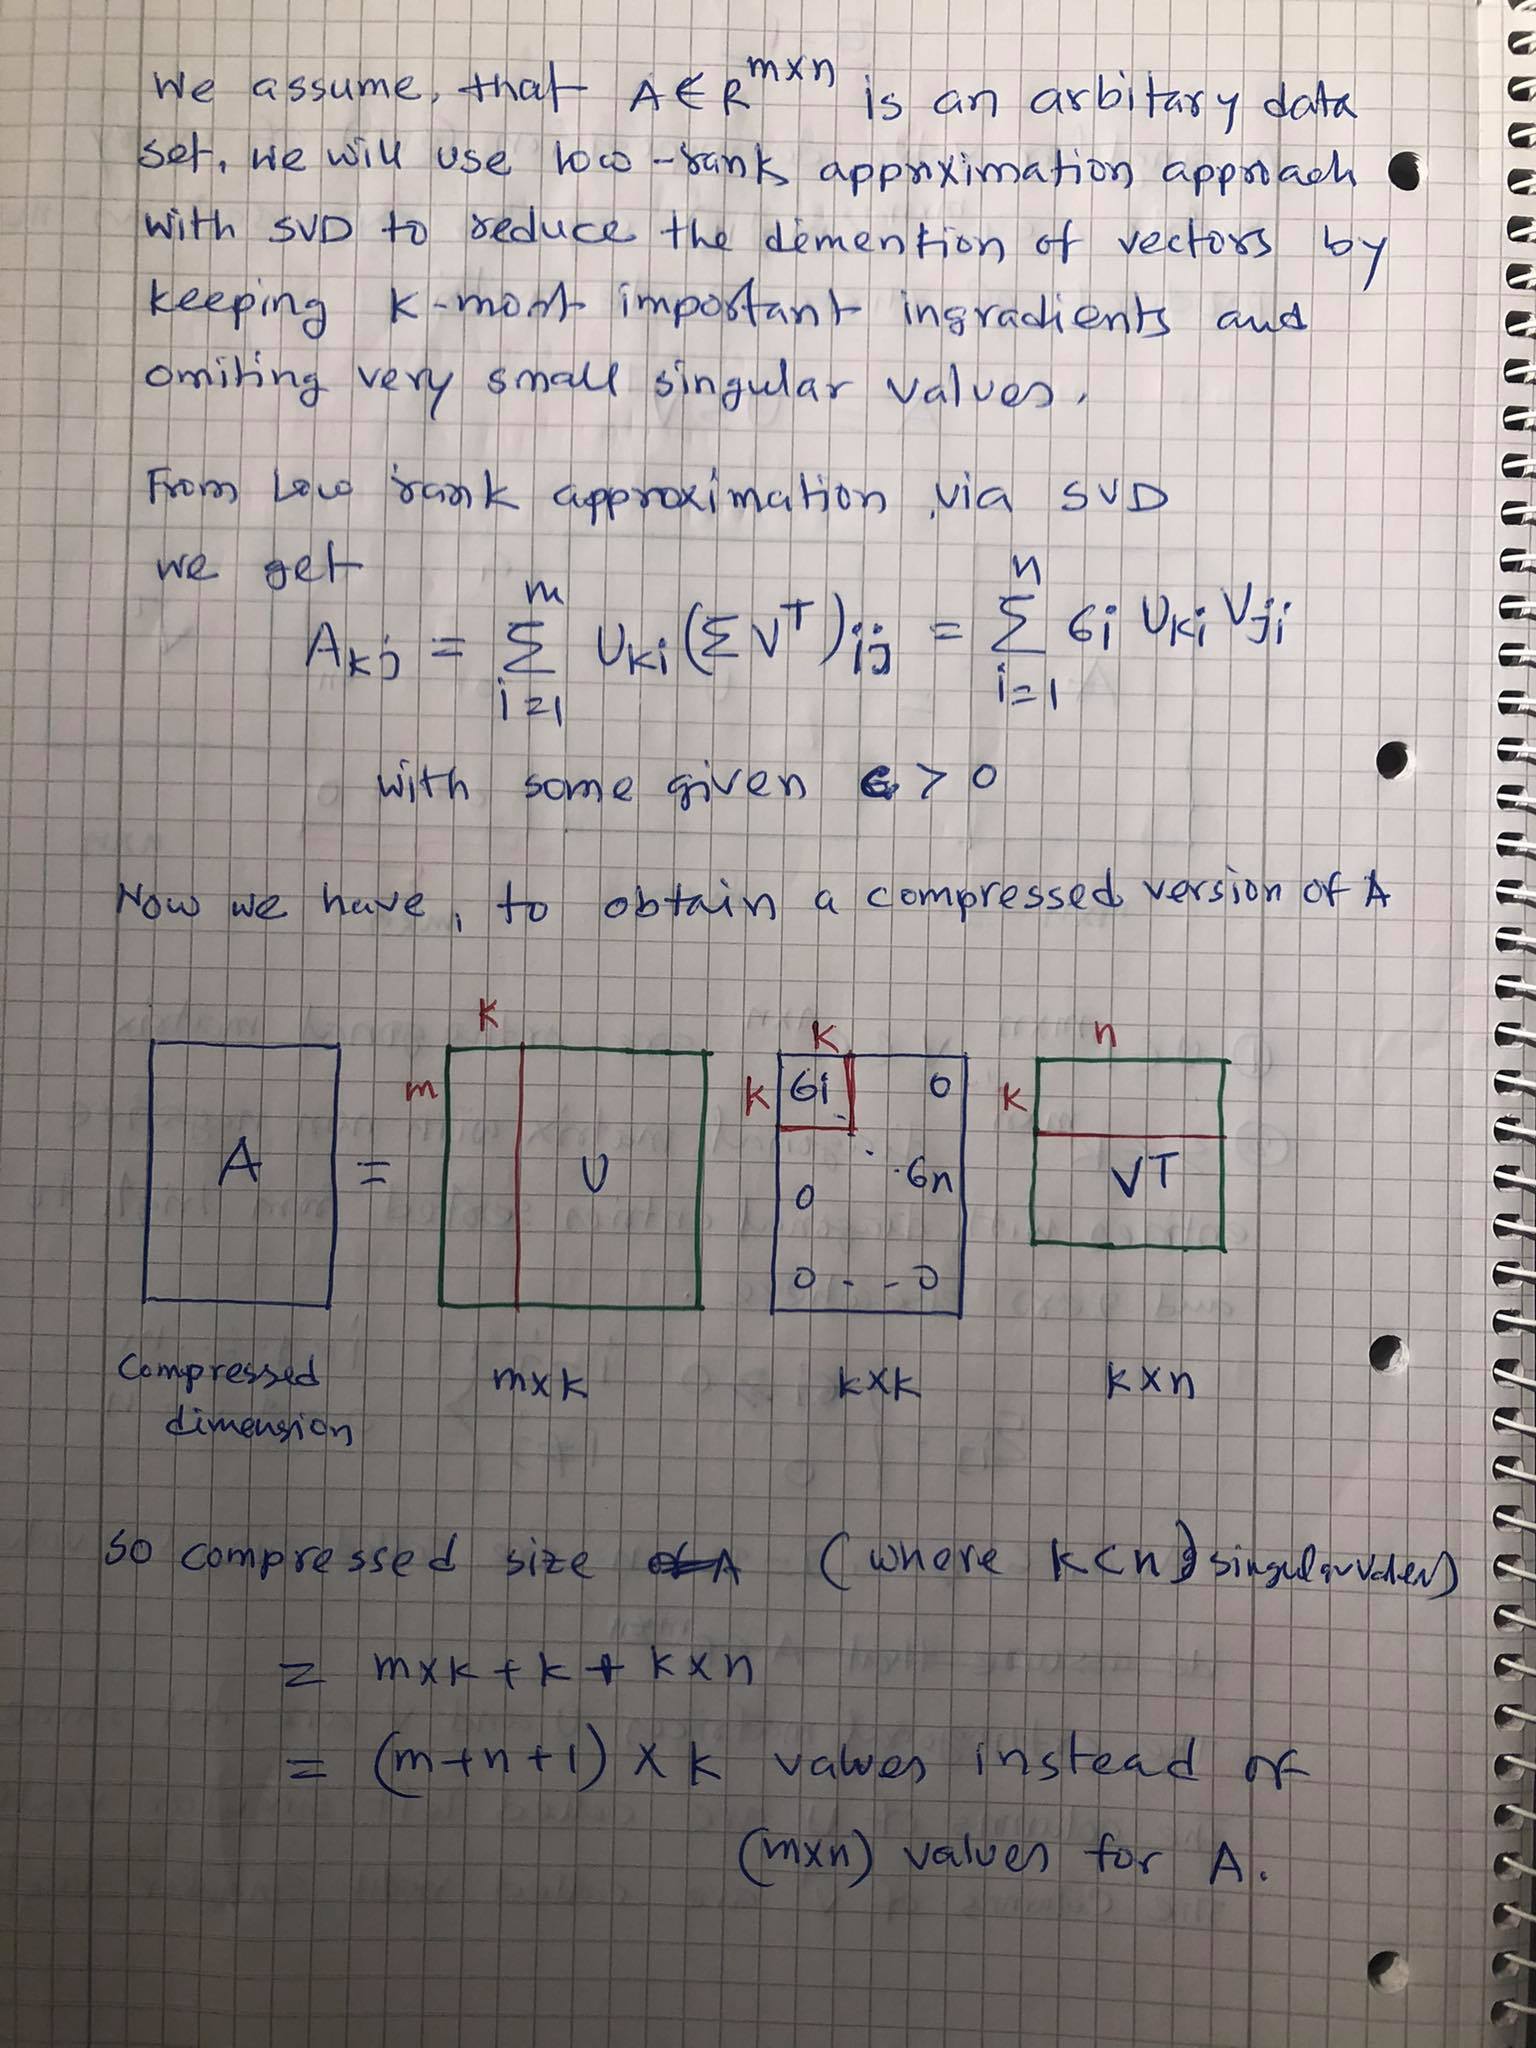 We assume, that A ∈ R^{m×n} is an arbitary data
set, we will use low-rank approximation approach
with SVD to reduce the demention of vectors by
keeping K-most important ingradients and
omiting very small singular values.
From Low rank approximation via SVD
we get
A_{kj} = \sum_{i=1}^{m} U_{ki} (ΣV^T)_{ij} = \sum_{i=1}^{n} σ_i U_{ki} V_{ji}
with some given ϵ > 0
Now we have, to obtain a compressed version of A
K
K
n
m
K
K
σi
0
A
=
U
0
σn
VT
0 - - 0
Compressed
dimension
m×k
k×k
k×n
So compressed size (where k<n singular values)
= m×k + k + k×n
= (m+n+1) × k values instead of
(m×n) values for A.